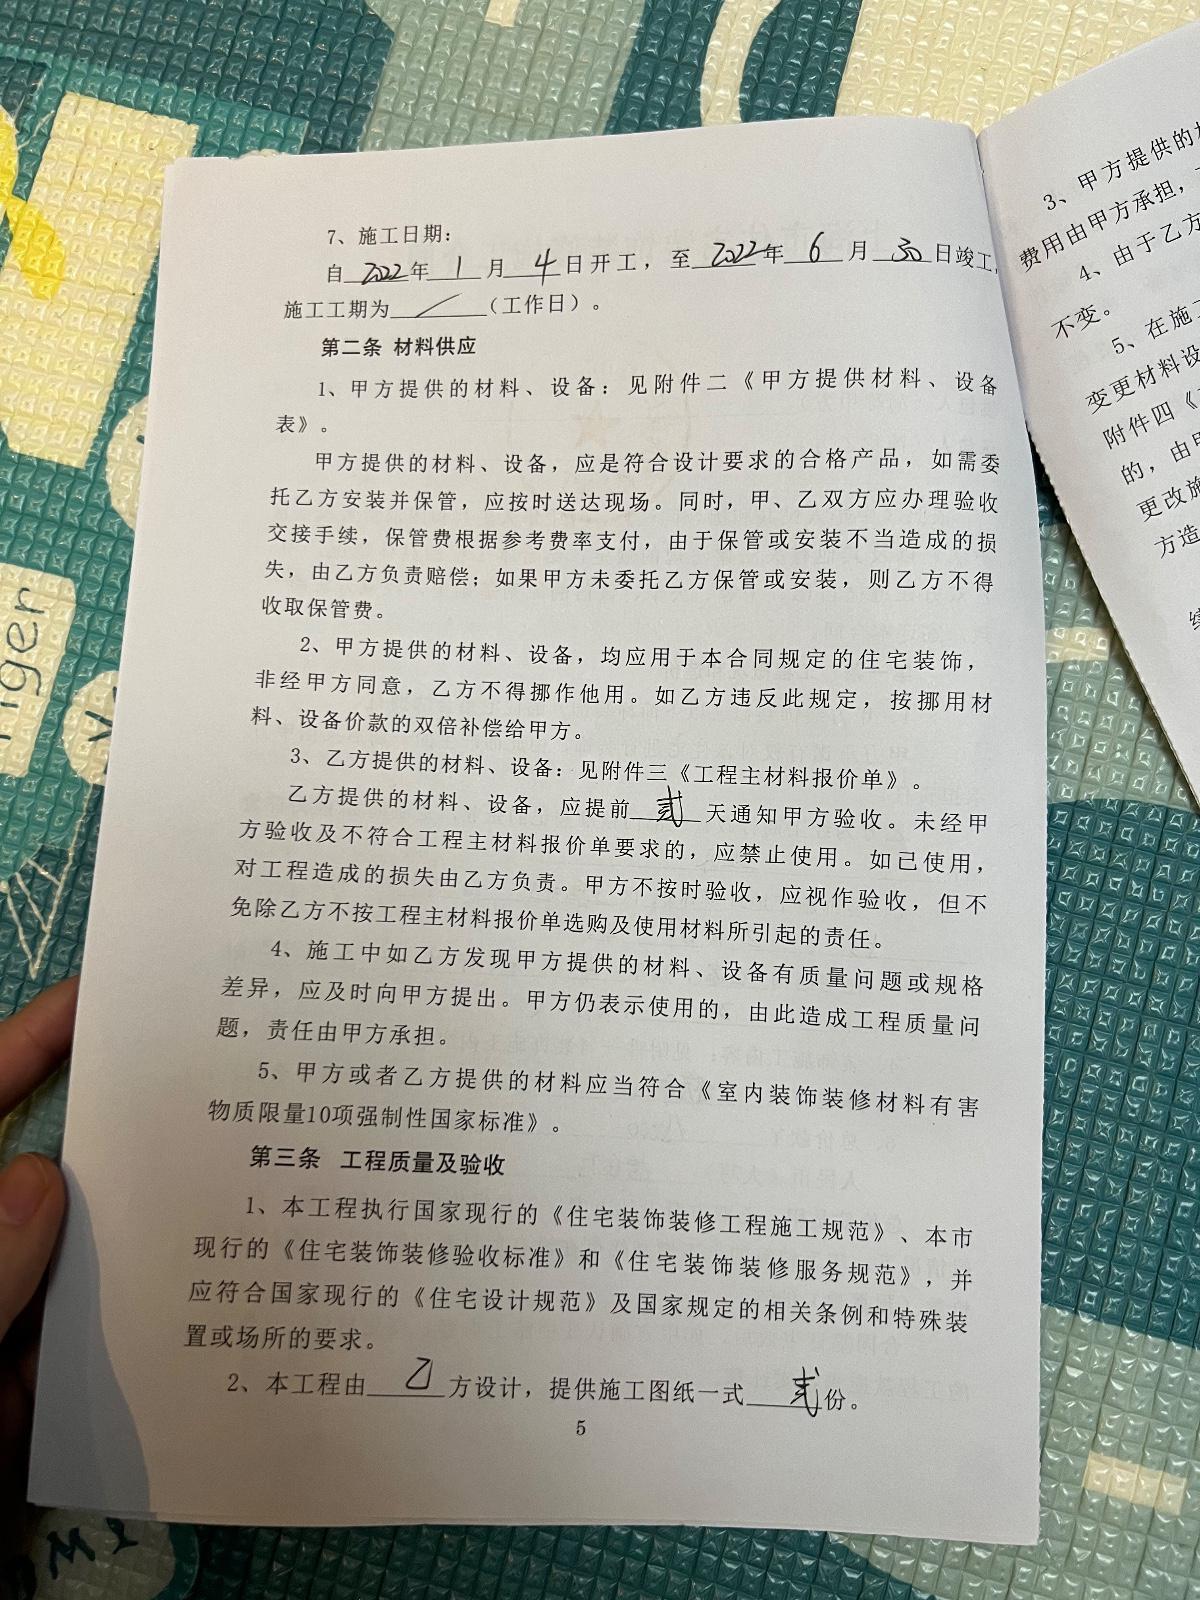 7、施工日期：
自2022年1月4日开工，至2022年6月30日竣工，
施工工期为／（工作日）。
第二条 材料供应
1、甲方提供的材料、设备：见附件二《甲方提供材料、设备
表》。
甲方提供的材料、设备，应是符合设计要求的合格产品，如需委
托乙方安装并保管，应按时送达现场。同时，甲、乙双方应办理验收
交接手续，保管费根据参考费率支付，由于保管或安装不当造成的损
失，由乙方负责赔偿；如果甲方未委托乙方保管或安装，则乙方不得
收取保管费。
2、甲方提供的材料、设备，均应用于本合同规定的住宅装饰，
非经甲方同意，乙方不得挪作他用。如乙方违反此规定，按挪用材
料、设备价款的双倍补偿给甲方。
3、乙方提供的材料、设备：见附件三《工程主材料报价单》。
乙方提供的材料、设备，应提前贰天通知甲方验收。未经甲
方验收及不符合工程主材料报价单要求的，应禁止使用。如已使用，
对工程造成的损失由乙方负责。甲方不按时验收，应视作验收，但不
免除乙方不按工程主材料报价单选购及使用材料所引起的责任。
4、施工中如乙方发现甲方提供的材料、设备有质量问题或规格
差异，应及时向甲方提出。甲方仍表示使用的，由此造成工程质量问
题，责任由甲方承担。
5、甲方或者乙方提供的材料应当符合《室内装饰装修材料有害
物质限量10项强制性国家标准》。
第三条 工程质量及验收
1、本工程执行国家现行的《住宅装饰装修工程施工规范》、本市
现行的《住宅装饰装修验收标准》和《住宅装饰装修服务规范》，并
应符合国家现行的《住宅设计规范》及国家规定的相关条例和特殊装
置或场所的要求。
2、本工程由乙方设计，提供施工图纸一式贰份。
5
3、甲方提供的
费用由甲方承担，
4、由于乙方
不变。
5、在施工
变更材料设
附件四《
的，由甲
更改施
方造
Tiger